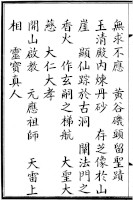 無求不應　黃谷磯頭留聖蹟
玉清殿內煉丹砂　存芝像於山
崖　顯仙踪於古洞　闡法門之
香火　作玄嗣之梯航　大聖大
慈　大仁大孝
開山啟教　元應祖師　天雷上
相　靈寶真人